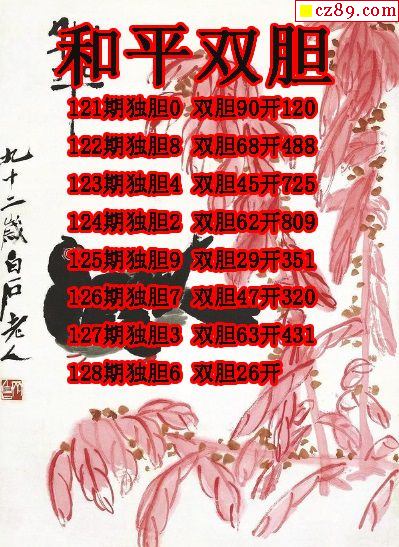 cz89.com
和平双胆
121期独胆0 双胆90开120
122期独胆8 双胆68开488
123期独胆4 双胆45开725
124期独胆2 双胆62开809
125期独胆9 双胆29开351
126期独胆7 双胆47开320
127期独胆3 双胆63开431
128期独胆6 双胆26开
九十二岁白石老人